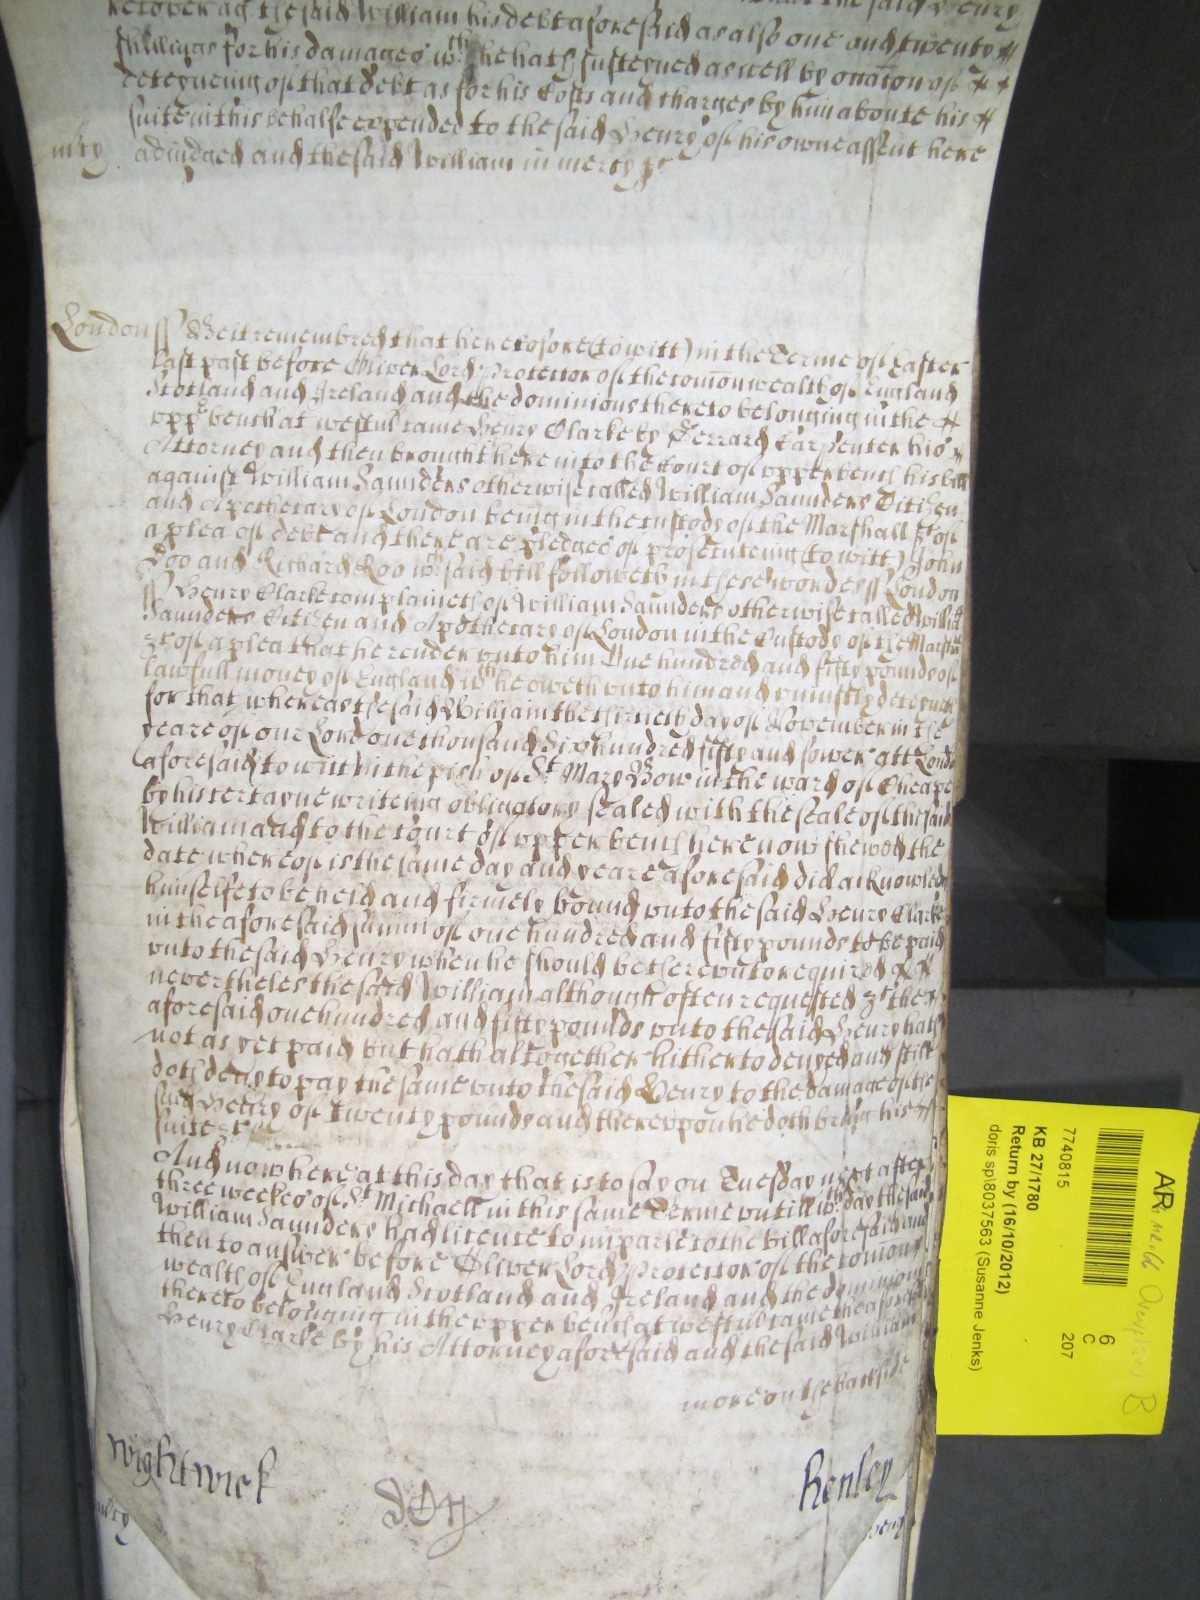 recover ag the said William his debt aforesaid as also one and twenty
shillings for his damages wch he hath susteyned aswell by occasion of
deteyneing of that debt as for his Costs and charges by him aboute his
suite in this behalfe expended to the said Henry of his owne assent here
adiudged and the said William in mercy &c
mcy
London ss Be it remembred that heretofore (to witt) in the Terme of Easter
last past before Oliver Lord Protector of the comonwealth of England
Scotland and Ireland and the dominions thereto belonging in the
upp bench at westmr came Henry Clarke by Gerrard Carpenter his
Attorney and then brought here into the Court of upper bench his bill
against William Saunders otherwise called William Saunders Citizen
and Apothecary of London being in the custody of the Marshall &c of
a plea of debt and there are pledges of prosecuteing (to witt) John
Doo and Richard Roo wch said bill followeth in these wordes ss London
ss Henry Clarke complaineth of William Saunders otherwise called Willm
Saunders Citizen and Apothecary of London in the Custody of the Marshall
&c of a plea that he render unto him One hundred and fifty pounds of
lawfull money of England wch he oweth unto him and uniustly deteyneth
for that whereas the said William the thirtieth day of November in the
yeare of our Lord one thousand six hundred fifty and fower att London
aforesaid to witt in the pish of St Mary Bow in the ward of Cheape
by his certayne writeing obligatory sealed with the seale of the said
William and to the Court of upper bench here now shewed the
date whereof is the same day and yeare aforesaid did acknowledge
himselfe to be held and firmely bound unto the said Henry Clarke
in the aforesaid summ of one hundred and fifty pounds to be paid
unto the said Henry when he should be thereunto required
nevertheles the said William although often requested &c the
aforesaid one hundred and fifty pounds unto the said Henry hath
not as yet paid but hath altogether hitherto denyed and still
doth deny to pay the same unto the said Henry to the damage of the
said Henry of twenty pounds and thereupon he doth bring his
suite &c
And now here at this day that is to say on Tuesday next after
three weekes of St Michaell in this same Terme untill wch day the said
William Saunders had licence to imparle to the bill aforesaid and
then to answer before Oliver Lord Protector of the comon
wealth of England Scotland and Ireland and the dominions
thereto belonging in the upper bench at westmr came the aforesaid
Henry Clarke by his Attorney aforesaid and the said William
more on the backside
Wightwick
Henley
mcy
7740815
KB 27/1780
Return by (16/10/2012)
doris sp\8037563 (Susanne Jenks)
AR
6
C
207
B